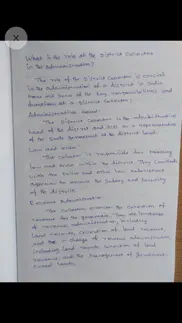 What is the role of the District Collector
in the administration?
The role of the District Collector is crucial
in the administration of a district in India
Here are some of the key responsibilities and
functions of a District Collector;
Administrative Head:
The District Collector is the administrative
head of the district and acts as a representative
of the State government at the district level.
Law and order:
The collector is responsible for
law and order within the district. They
with the police and other law enforcement
agencies to ensure the safety and security
of the district.
Revenue Administration:
The collector oversees the collection of
revenue for the government. They are
of revenue administration, including
land records, collection of land revenue,
and the in charge of revenue administration,
including land records, collection of land
revenue, and the management of government
owned lands.